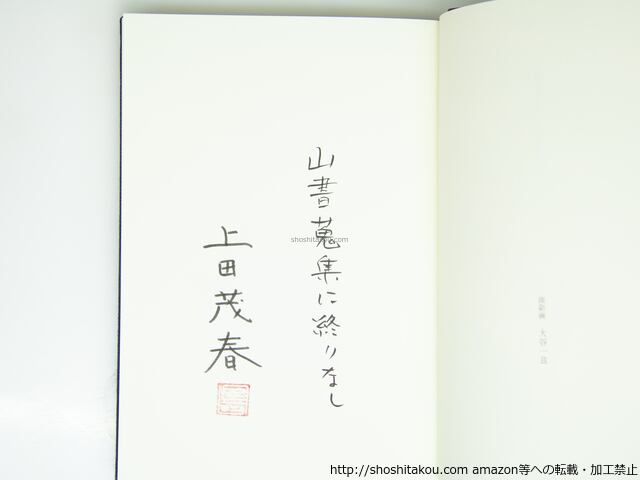 山書蒐集に終りなし
上田茂春
shoshitakou.com
大谷一良
http://shoshitakou.com amazon等への転載・加工禁止